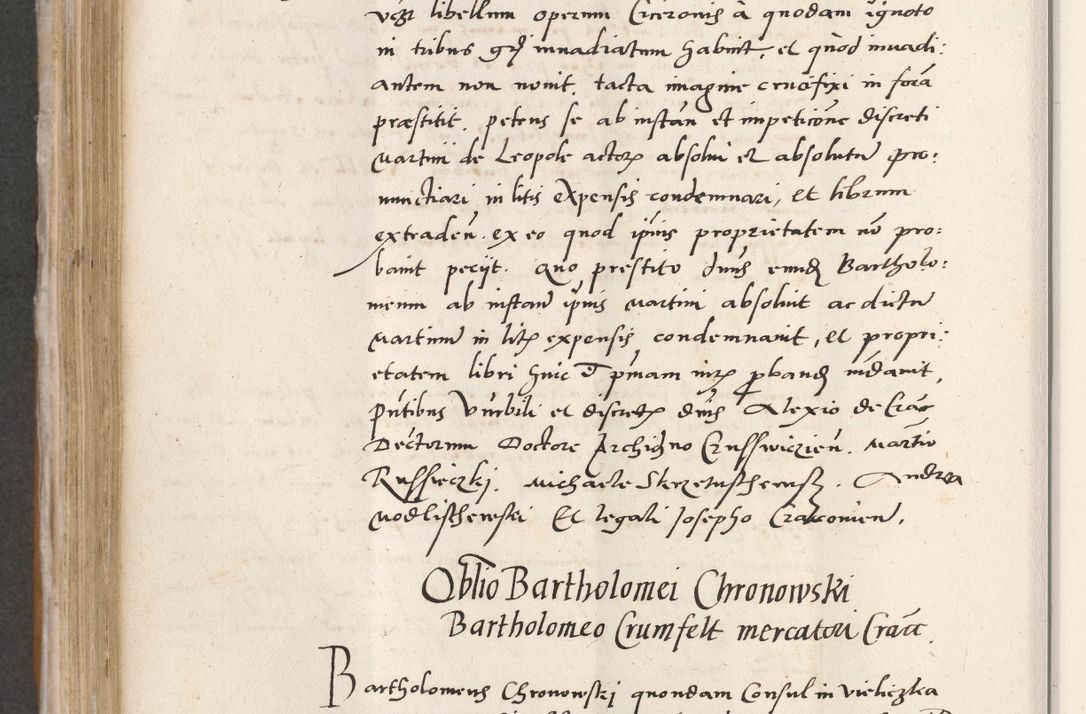 libellum operum Ciceronis a quodam ignoto
in tribus invadiatum habuit, et quod invadi:
antem non novit, tacta imagine crucifixi in fora
præstitit, petens se ab instan et impeticone discreti
Martini de Leopole actor absolvi et absolutu pro:
nunctiari in litis expensis condemnari, et librum
extraden. ex eo quod ipius proprietatem no pro:
bavit peciit. Quo prestito dnus eund Bartholo:
meum ab instan ipius Martini absolvit ac dictu
Martinu in lit expensis condemnavit, et propri:
etatem libri huic
pntibus Vnrbili et discret dnis Alexio de Crac
Decretorum Doctore Archid no Martino
Michaele Andrea
Et legali Josepho Cracovien,
Obltio Bartholomei Chronowski
Bartholomeo Crumfelt mercatori Cracc.
Bartholomeus Chronowski quondam Consul in Vieliczka